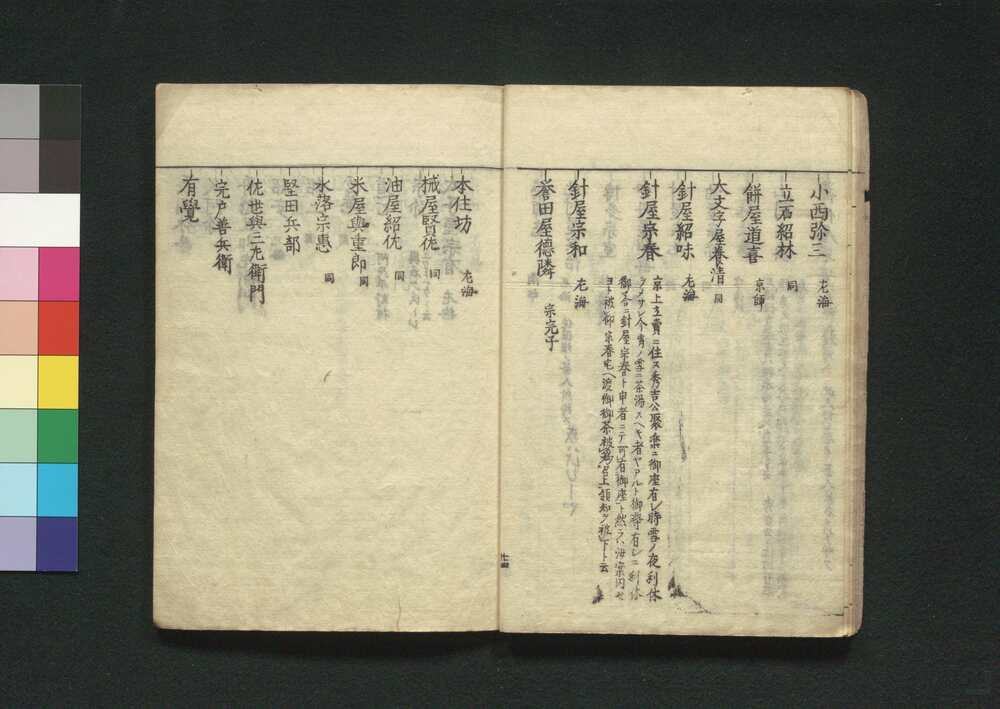 小西弥三 左海
立石紹林 同
餅屋道喜 京師
大文字屋養清 同
針屋紹味 左海
針屋宗春
京上立賣ニ住ス秀吉公聚楽ニ御座有シ時雪ノ夜利休
今宵ノ雪ニ茶湯スヘキ者ヤアルト御尋有シニ利休
御答ニ針屋宗春ト申者ニテ可有御座ト然ラハ汝案内セ
ヨト被仰宗春宅ヘ渡御御茶被召上領知ヲ被下ト云
針屋宗和 左海
誉田屋徳隣 宗完子
七四
本住坊 左海
械屋賢佐 同
油屋紹佐 同
米屋與重郎 同
水落宗恵 同
堅田兵部
佐世與三左衛門
宍戸善兵衛
有覺